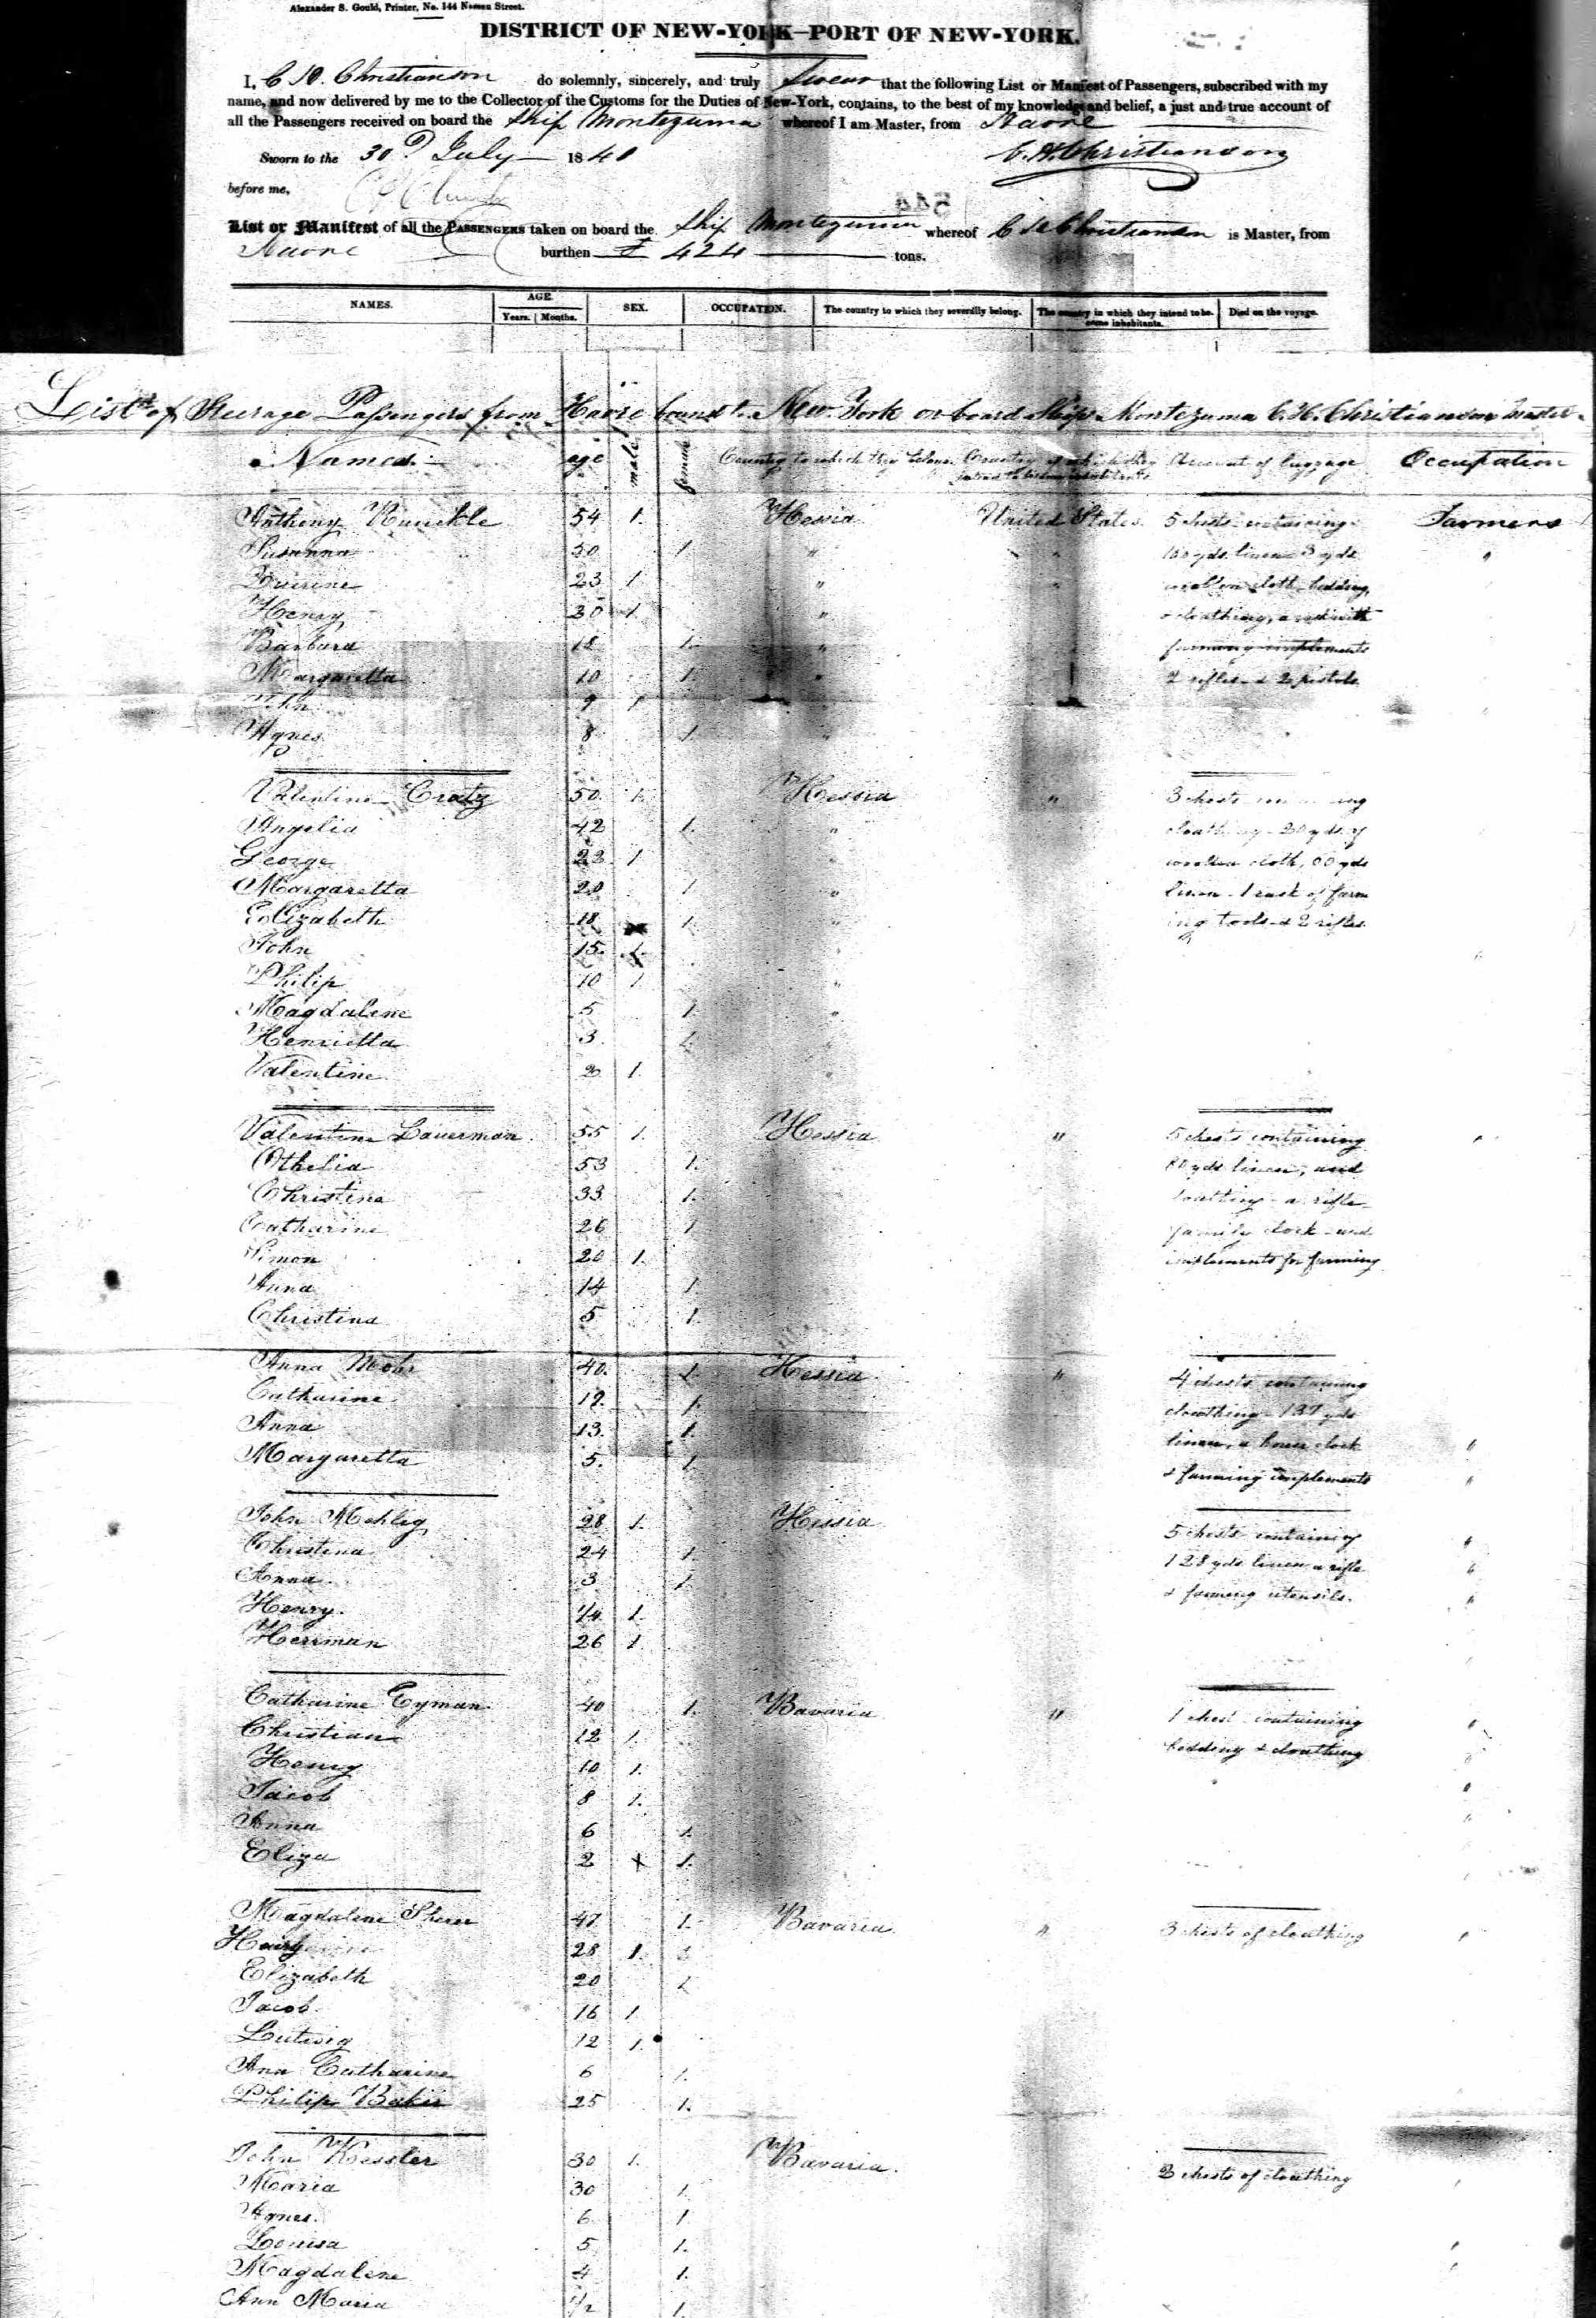 Alexander S. Gould, Printer, No. 144 Nassau Street.
DISTRICT OF NEW-YORK—PORT OF NEW-YORK.
I, C H Christianson do solemnly, sincerely, and truly swear that the following List or Manifest of Passengers, subscribed with my
name, and now delivered by me to the Collector of the Customs for the Duties of New-York, contains, to the best of my knowledge and belief, a just and true account of
all the Passengers received on board the Ship Montezuma whereof I am Master, from Havre
Sworn to the 30 July 1840 C. H. Christianson
before me,
544
List or Manifest of all the PASSENGERS taken on board the Ship Montezuma whereof C H Christianson is Master, from
Havre burthen 424 tons.
NAMES. AGE. Years. Months. SEX. OCCUPATION. The country to which they severally belong. The country in which they intend to become inhabitants. Died on the voyage.
List of Steerage Passengers from Havre bound to New York on board Ship Montezuma C. H. Christianson Master
Names. age male female Country to which they belong Country of which they intend to become inhabitants Amount of luggage Occupation
Anthony Runckle 54 1. Hessia United States 5 chests containing Farmers
Susanna 50 1 " " 100 yds. linen 3 yds "
23 1 " " woollen cloth bedding,
Henry 30 1. " & cloathing, a with
Barbara 18 1. " farming implements
Margaretta 10 1. " 2 rifles & 2 pistols
John 9 1 "
Agnes 8 1. "
Valentine Cratz 50 1. Hessia " 3 chests containing
Angelia 42 1. " cloathing - 20 yds. of
George 22 1 " woollen cloth, yds
Margaretta 20 1 " linen - 1 cask of farm
Elizabeth 18 1. " ing tools & 2 rifles.
John 15. 1.
Philip 10 1. "
Magdalene 5 1. "
Henrietta 3 1.
Valentine 2 1. "
Valentine Lauerman 55 1. Hessia " 5 chests containing "
Othelia 53 1. yds linen, and
Christina 33 1. cloathing - a rifle
Catharine 26 1 family clock - and
Simon 20 1. implements for farming
Anna 14 1
Christina 5 1.
Anna Mohr 40. 1. Hessia " 4 chests containing
Catharine 19. 1. cloathing - 137 yds
Anna 13. 1. linen, a house clock "
Margaretta 5. 1 & farming implements "
John Mehlig 28 1. Hessia 5 chests containing "
Christina 24 1. 128 yds linen a rifle "
Anna 3 1. & farming utensils. "
Henry. 1/4 1.
Herrman 26 1
Catharine Eyman 40 1. Bavaria " 1 chest containing "
Christian 12 1. bedding & cloathing "
Henry 10 1. "
Jacob 8 1.
Anna 6 1.
Eliza 2 x 1.
Magdalene Sherer 47 1. Bavaria " 3 chests of cloathing "
Henry 28 1.
Elizabeth 20 1.
Jacob 16 1.
Lutwig 12 1.
Ana Catharine 6 1.
Philip Baker 25 1.
John Kessler 30 1. Bavaria. 3 chests of cloathing
Maria 30 1.
Agnes. 6 1
Louisa 5 1. "
Magdalene 4 1. "
Ann Maria 1/2 1.